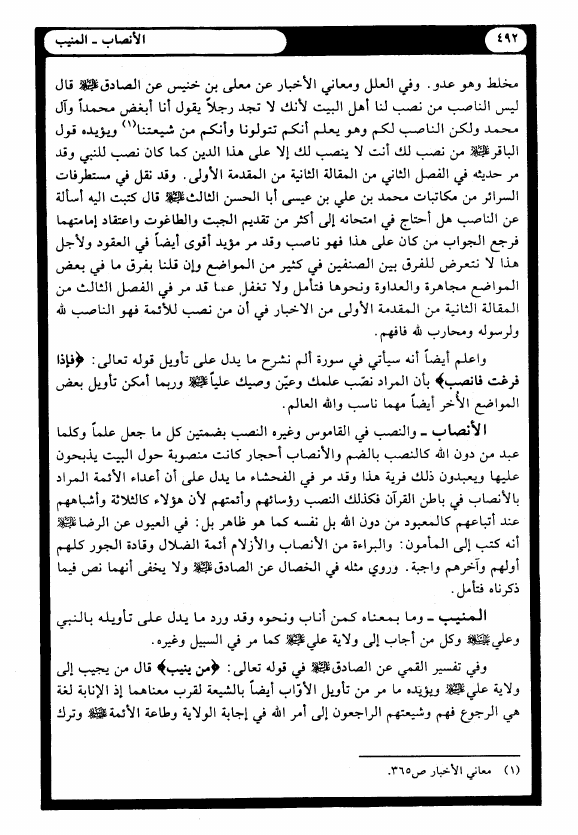 ٤٩٢
الأنصاب ـ المنيب
مخلط وهو عدو. وفي العلل ومعاني الأخبار عن معلى بن خنيس عن الصادق ﷺ قال
ليس الناصب من نصب لنا أهل البيت لأنك لا تجد رجلاً يقول أنا أبغض محمداً وآل
محمد ولكن الناصب لكم وهو يعلم أنكم تتولونا وأنكم من شيعتنا(١) ويؤيده قول
الباقر ﷺ من نصب لك أنت لا ينصب لك إلا على هذا الدين كما كان نصب للنبي وقد
مر حديثه في الفصل الثاني من المقالة الثانية من المقدمة الأولى. وقد نقل في مستطرفات
السرائر من مكاتبات محمد بن علي بن عيسى أبا الحسن الثالث ﷺ قال كتبت اليه أسألة
عن الناصب هل أحتاج في امتحانه إلى أكثر من تقديم الجبت والطاغوت واعتقاد إمامتهما
فرجع الجواب من كان على هذا فهو ناصب وقد مر مؤيد أقوى أيضاً في العقود ولأجل
هذا لا نتعرض للفرق بين الصنفين في كثير من المواضع وإن قلنا بفرق ما في بعض
المواضع مجاهرة والعداوة ونحوها فتأمل ولا تغفل عما قد مر في الفصل الثالث من
المقالة الثانية من المقدمة الأولى من الاخبار في أن من نصب للأئمة فهو الناصب لله
ولرسوله ومحارب لله فافهم.
واعلم أيضاً أنه سيأتي في سورة ألم نشرح ما يدل على تأويل قوله تعالى: ﴿فإذا
فرغت فانصب﴾ بأن المراد نصّب علمك وعيّن وصيك علياً ﷺ وربما أمكن تأويل بعض
المواضع الأُخر أيضاً مهما ناسب والله العالم.
الأنصاب ـ والنصب في القاموس وغيره النصب بضمتين كل ما جعل علماً وكلما
عبد من دون الله كالنصب بالضم والأنصاب أحجار كانت منصوبة حول البيت يذبحون
عليها ويعبدون ذلك قربة هذا وقد مر في الفحشاء ما يدل على أن أعداء الأئمة المراد
بالأنصاب في باطن القرآن فكذلك النصب رؤسائهم وأئمتهم لأن هؤلاء كالثلاثة وأشباههم
عند أتباعهم كالمعبود من دون الله بل نفسه كما هو ظاهر بل: في العيون عن الرضا ﷺ
أنه كتب إلى المأمون: والبراءة من الأنصاب والأزلام أئمة الضلال وقادة الجور كلهم
أولهم وآخرهم واجبة. وروي مثله في الخصال عن الصادق ﷺ ولا يخفى أنهما نص فيما
ذكرناه فتأمل.
المنيب ـ وما بمعناه كمن أناب ونحوه وقد ورد ما يدل على تأويله بالنبي
وعلي ﷺ وكل من أجاب إلى ولاية علي ﷺ كما مر في السبيل وغيره.
وفي تفسير القمي عن الصادق ﷺ في قوله تعالى: ﴿من ينيب﴾ قال من يجيب إلى
ولاية علي ﷺ ويؤيده ما مر من تأويل الأوّاب أيضاً بالشيعة لقرب معناهما إذ الإنابة لغة
هي الرجوع فهم وشيعتهم الراجعون إلى أمر الله في إجابة الولاية وطاعة الأئمة ﷺ وترك
(١) معاني الأخبار ص٣٦٥.